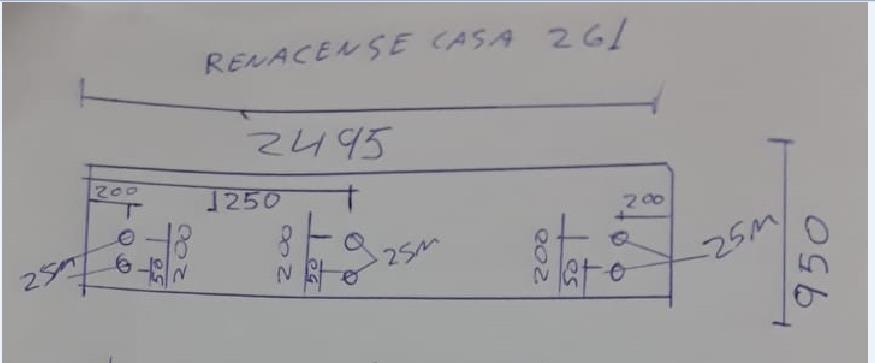 RENACENSE CASA 261
2495
200
1250
200
25M
50
200
200
50
25M
200
50
25M
950